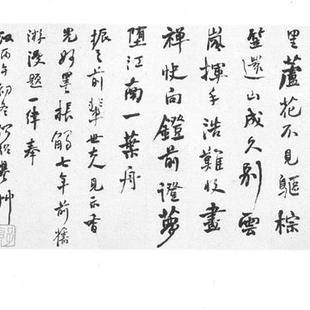 里蘆花不見驅棕
鞋遥山成久别雲
嵐揮手浩難收畫
禪快向鐙前證夢
墮江南一葉舟
振之前輩世丈見示香
光好墨棖觸七年前舊
游漫题一律奉
丙午初冬